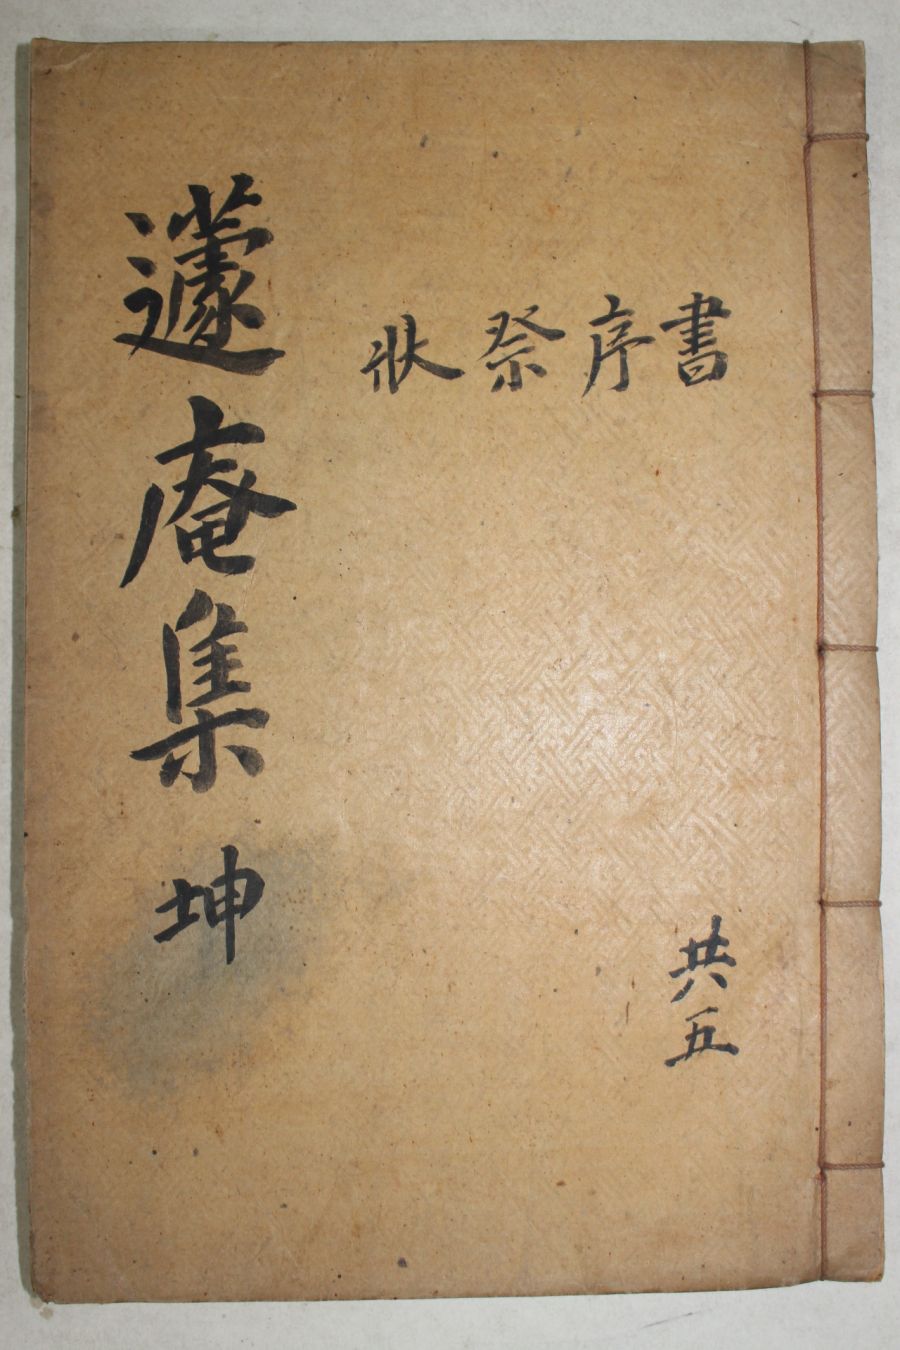 書序祭狀
共五
蘧庵集 坤